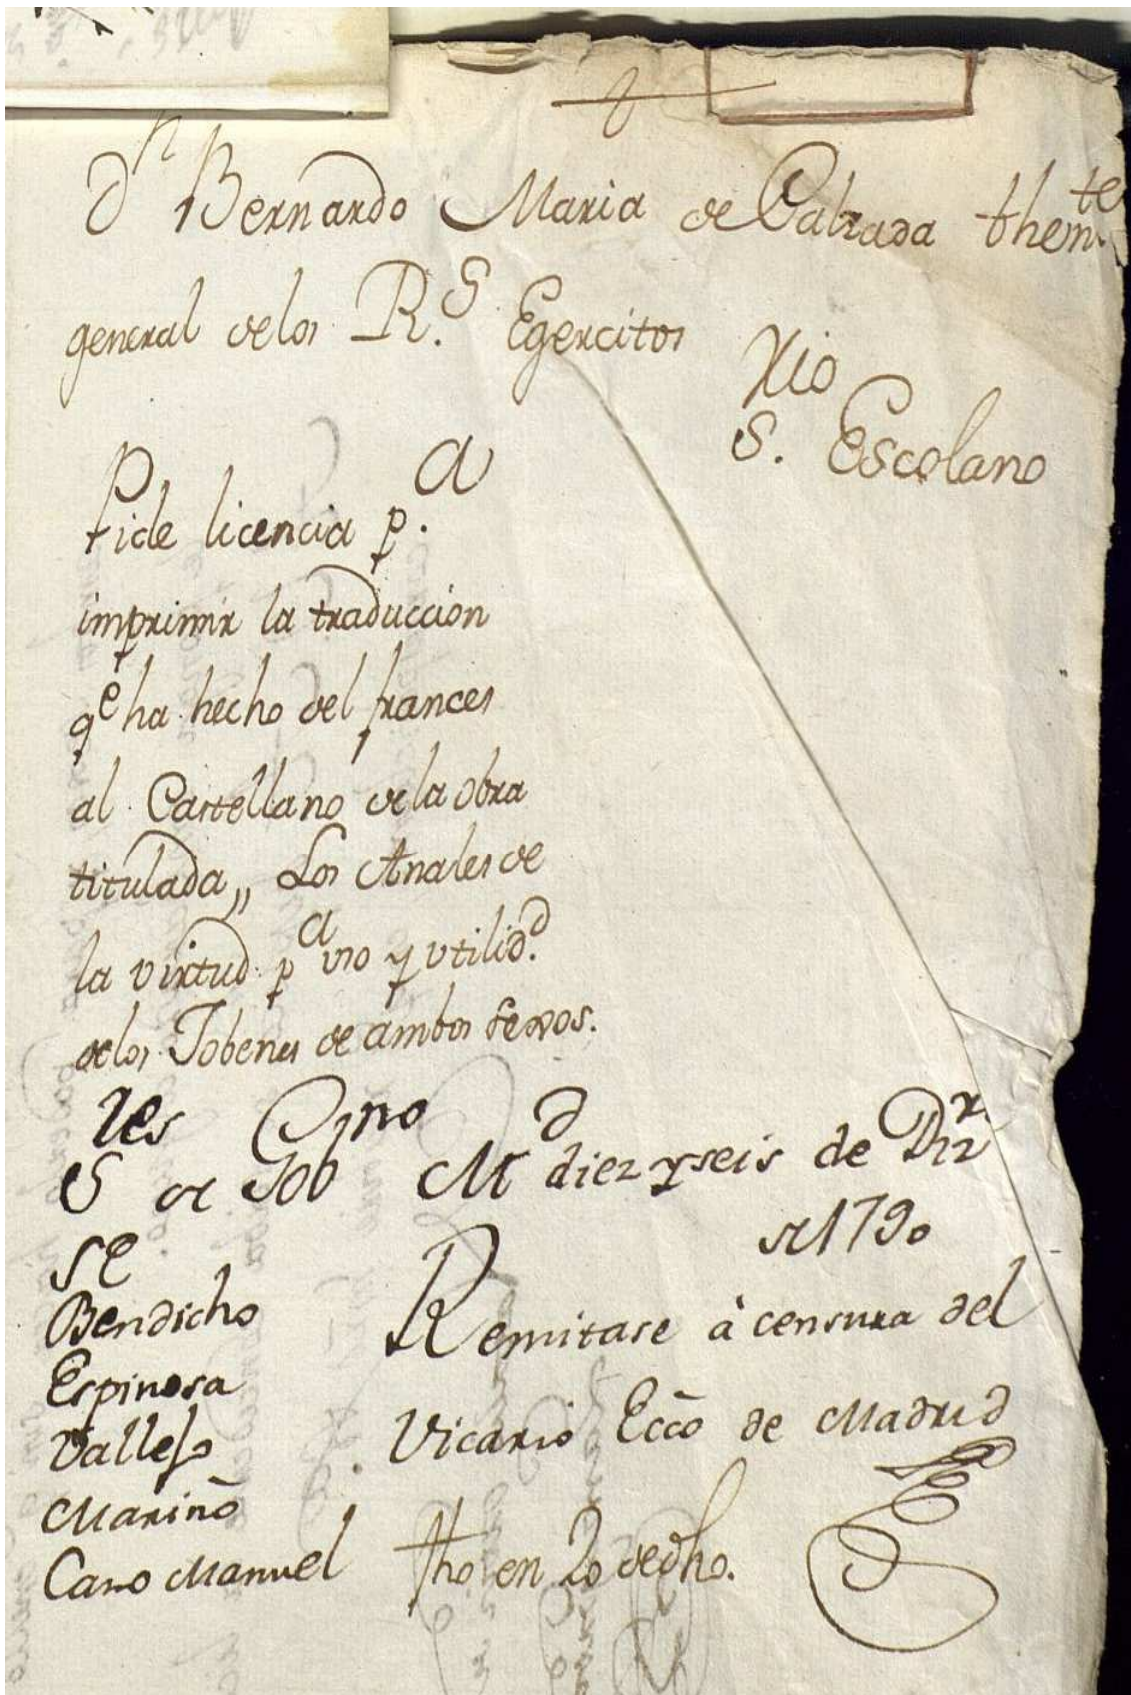 Dn Bernardo Maria de Calzada thente
general de los R.s Egercitos
Srio
S. Escolano
Pide licencia p.a
imprimir la traduccion
qe ha hecho del frances
al Castellano de la obra
titulada,, Los Anales de
la virtud pa uso y utilidd.
de los Jobenes de ambos sexos.
Sres de Gobno
Md diez y seis de Dizre
de 1790
Se
Bendicho
Espinosa
Vallejo
Mariño
Cano Manuel
Remitase à censura del
Vicario Ecco de Madrid
fho en 20 de dho.